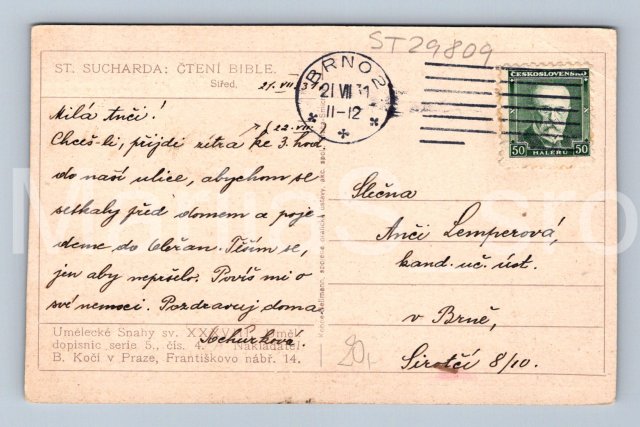 ST 29809
ST. SUCHARDA: ČTENÍ BIBLE.
Střed, 21. VII. 31
BRNO 2
21 VII 31
11-12
ČESKOSLOVENSKO
50 HALÉŘŮ 50
Milá Anči!
(22. VII.)
Chceš-li, přijdi zítra ke 3. hod.
do naší ulice, abychom se
setkaly před domem a poje-
deme do Obřan. Těším se,
jen aby nepršelo. Povíš mi o
své nemoci. Pozdravuj doma
Umělecké Snahy sv.
dopisnic serie 5., čís. 4. Nakladatel
B. Kočí v Praze, Františkovo nábř. 14.
Slečna
Anči Lemperová,
kand. uč. úst.
v Brně,
Sirotčí 8/10.
20,-